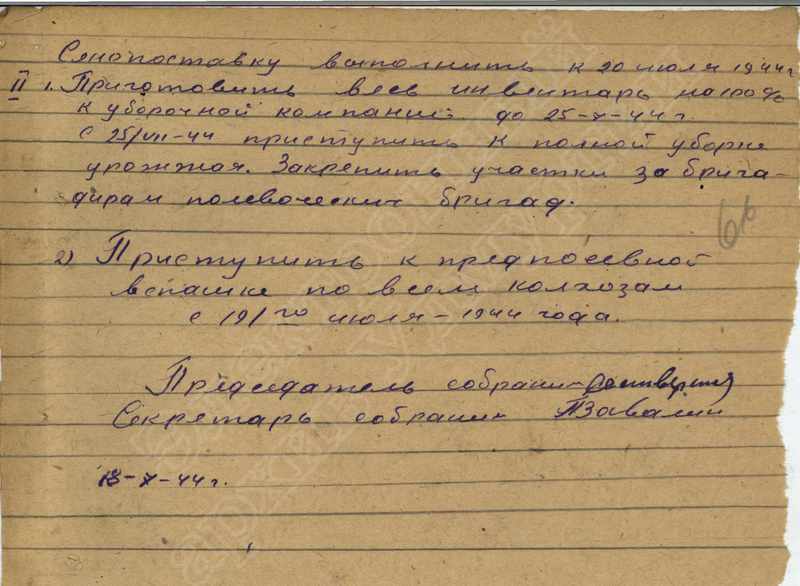 Сенопоставку выполнить к 20 июля 1944 г
II 1. Приготовить весь инвентарь на 100%
к уборочной компании до 25-7-44 г.
с 25/VII-44 приступить к полной уборке
урожжая. Закрепить участки за брига-
дирам полевоческих бригад.
2) Приступить к предпосевной
вспашке по всем колхозам
с 19/го июля - 1944 года.
Председатель собрания
Секретарь собрания
13-7-44 г.